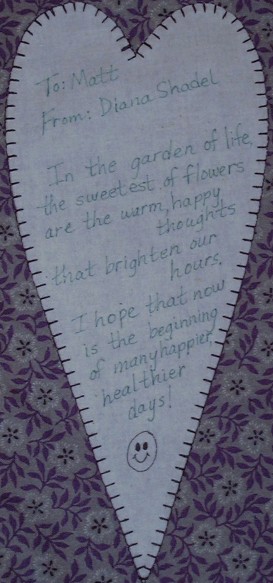 To: Matt
From: Diana Shadel
In the garden of life,
the sweetest of flowers
are the warm, happy
thoughts
that brighten our
hours.
I hope that now
is the beginning
of many happier,
healthier
days!